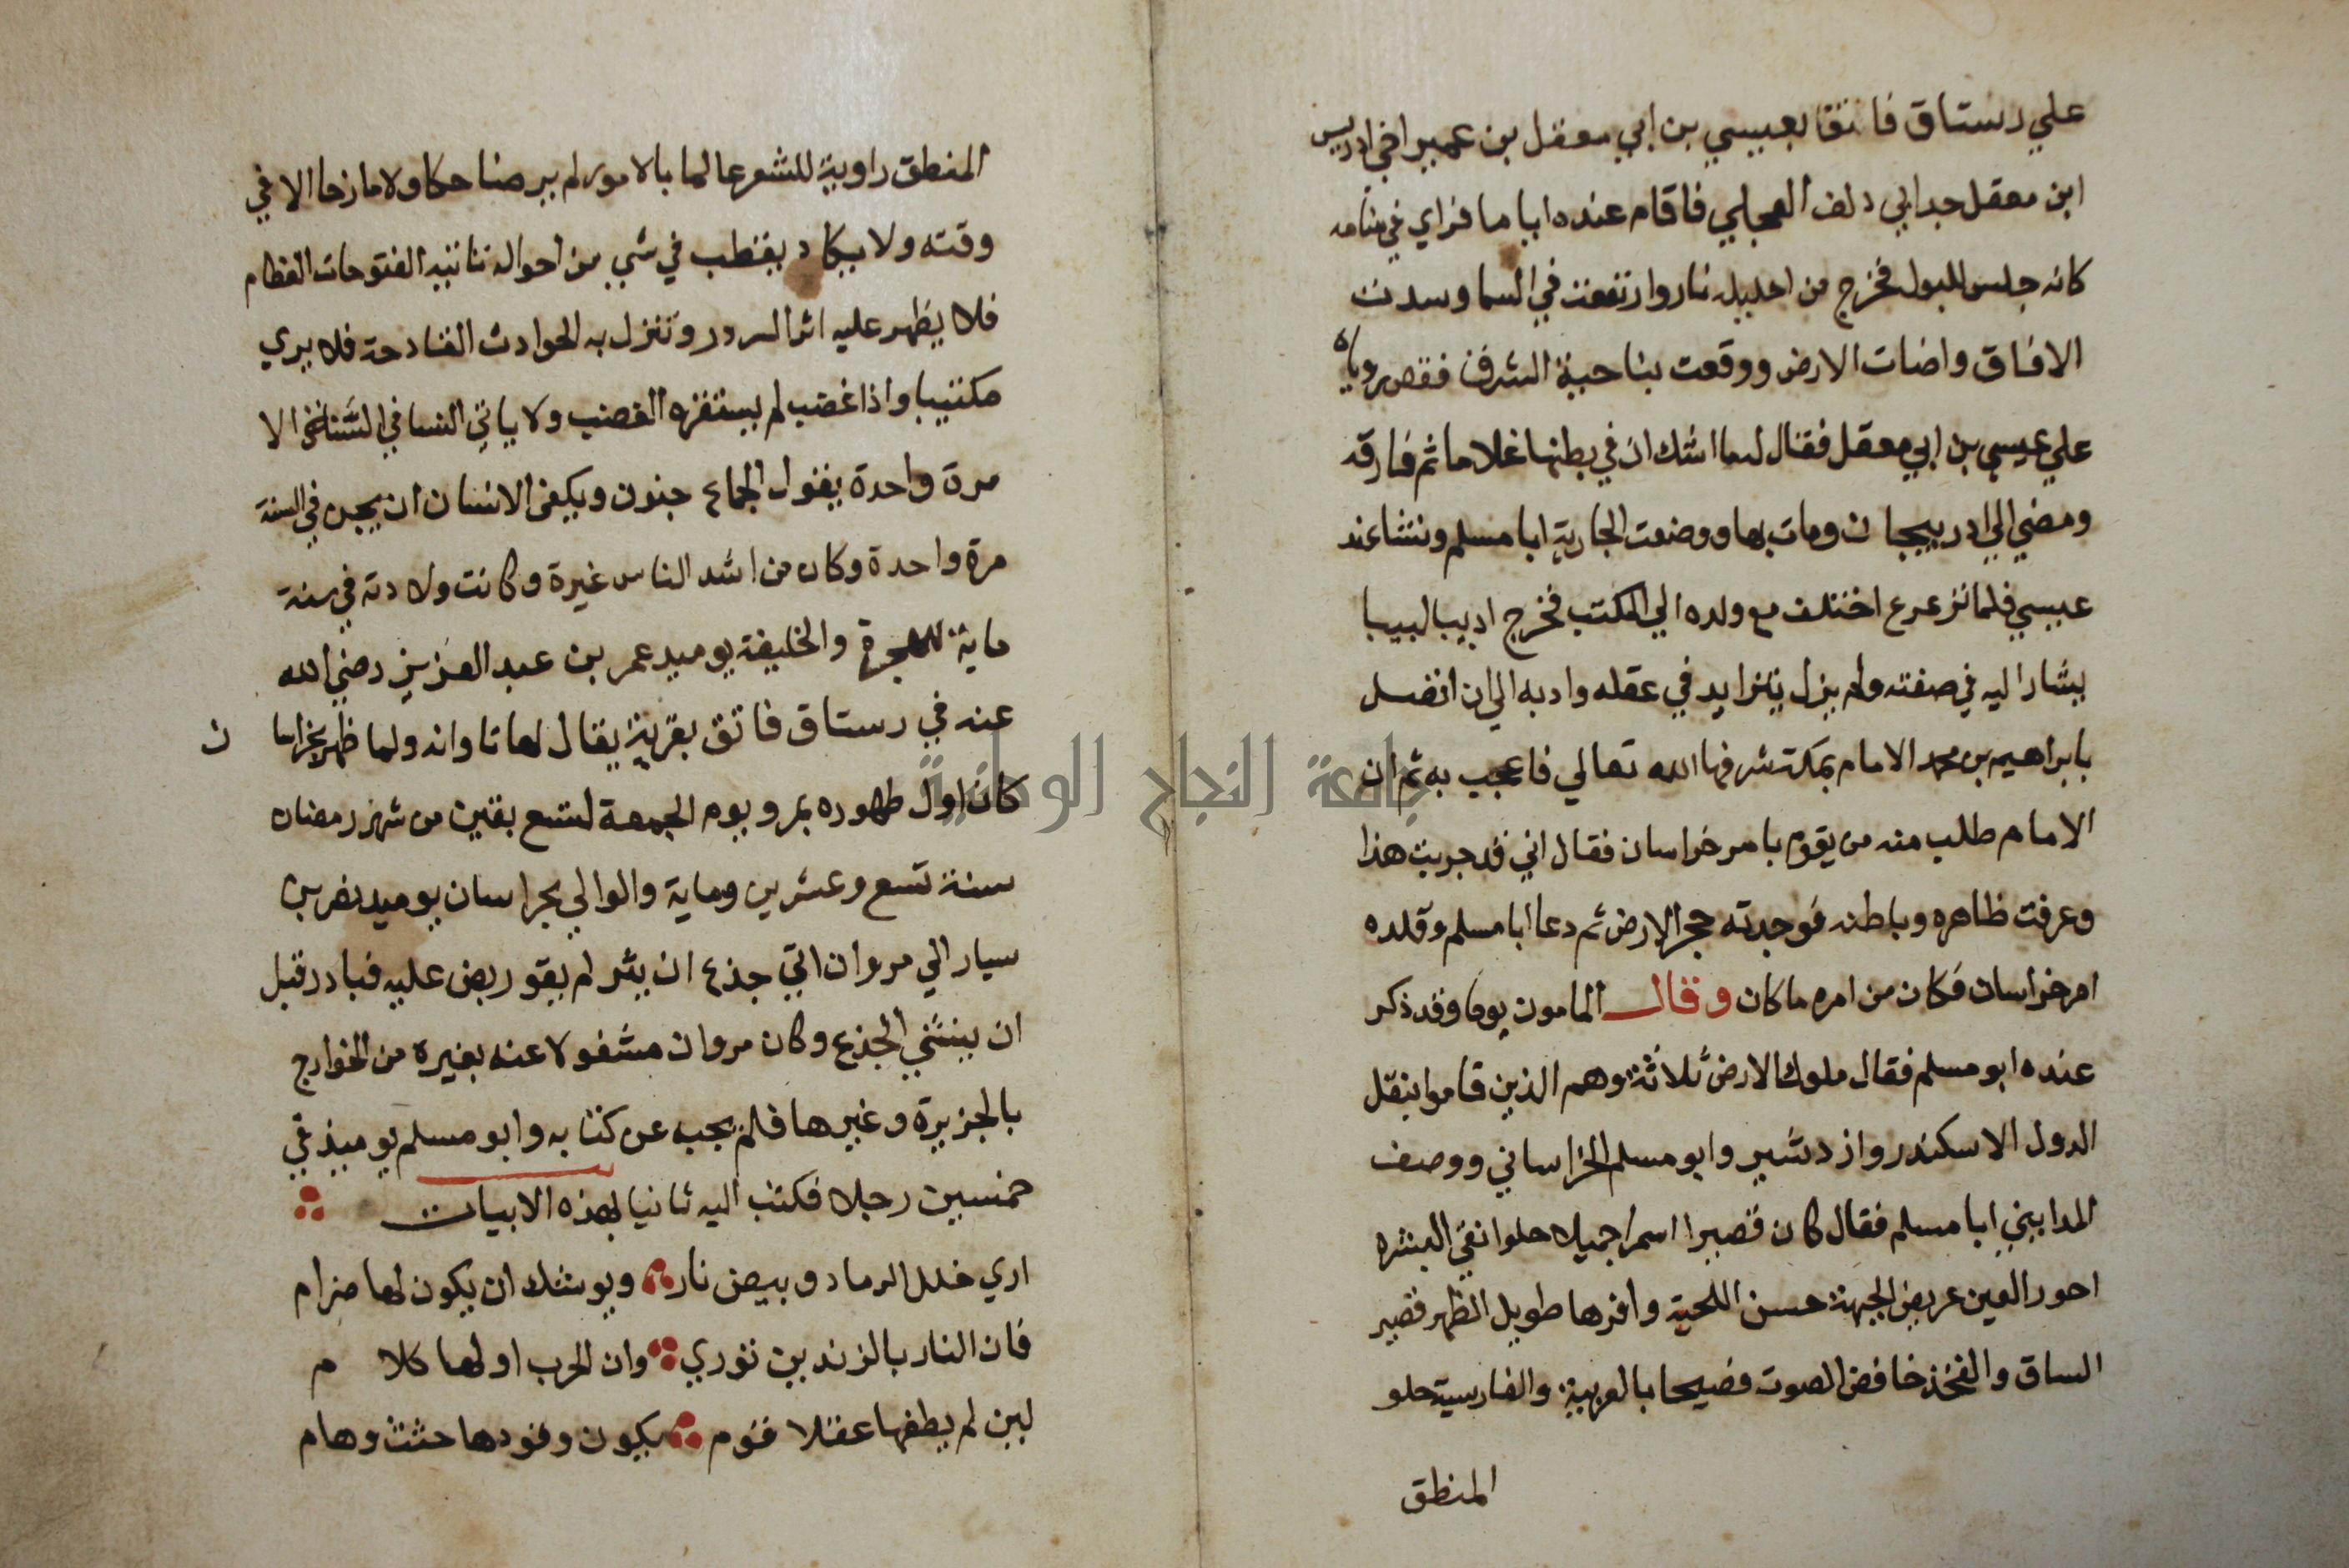 علي رستاق فاتقا بعيسي بن ابي معقل بن عمير اخي ادريس
ابن معقل جد ابي دلف العجلي فاقام عنده اياما فراي في منامه
كانه جلس للبول فخرج من احليله نار وارتفعت في السما وسدت
الافاق واضات الارض ووقعت بناحية الشرق فقص روياه
علي عيسي بن ابي معقل فقال له ما اشك ان في بطنها غلاما ثم فارقه
ومضي الي ادربيجان ومات بها ووضعت الجارية ابا مسلم ونشا عند
عيسي فلما ترعرع اختلف مع ولده الي المكتب فخرج اديبا لبيبا
يشار اليه في صفته ولم يزل يتزايد في عقله وادبه الي ان اتصل
بابراهيم بن محمد الامام بمكة شرفها الله تعالي فاعجب به ثم ان
الامام طلب منه من يقوم بامر خراسان فقال اني قد جربت هذا
وعرفت ظاهره وباطنه فوجدته حجر الارض ثم دعا ابا مسلم وقلده
امر خراسان فكان من امره ما كان وقال المامون يوما وقد ذكر
عنده ابو مسلم فقال ملوك الارض ثلاثة وهم الذين قاموا بنقل
الدول الاسكندر وازدشير وابو مسلم الخراساني ووصف
المدايني ابا مسلم فقال كان قصيرا اسمر جميلا حلوا نقي البشره
احور العين عريض الجبهة حسن اللحية وافرها طويل الظهر قصير
الساق والفخذ خافض الصوت فصيحا بالعربية والفارسية حلو
المنطق
المنطق راوية للشعر عالما بالامور لم ير ضاحكا ولا مازحا الا في
وقته ولا يكاد يقطب في شي من احواله تاتيه الفتوحات العظام
فلا يظهر عليه اثر السرور وتنزل به الحوادث الفادحة فلا يري
مكتيبا واذا غضب لم يستفزه الغضب ولا ياتي النسا في السنة الا
مرة واحدة يقول الجماع جنون ويكفي الانسان ان يجن في السنة
مرة واحدة وكان من اشد الناس غيرة وكانت ولادته في سنة
ماية للهجرة والخليفة يوميد عمر بن عبد العزيز رضي الله
عنه في رستاق فاتق بقرية يقال لها تاوانه ولما ظهر بخراسا ن
كان اول ظهوره بمرو يوم الجمعة لتسع بقين من شهر رمضان
سنة تسع وعشرين وماية والوالي بخراسان يوميد نصر بن
سيار الي مروان اني جذع ان يثر لم يقو ريض عليه فبادر قبل
ان ينثني الجذع وكان مروان مشغولا عنه بغيره من الخوارج
بالجزيرة وغيرها فلم يجب عن كتابه وابو مسلم يوميذ في
خمسين رجلا فكتب اليه ثانيا بهذه الابيات
اري خلل الرماد وبيض نار ويوشك ان يكون لها ضرام
فان النار بالزندين توري وان الحرب اولها كلا م
لين لم يطفها عقلا قوم يكون وقودها جثث وهام
جامعة النجاح الوطنية